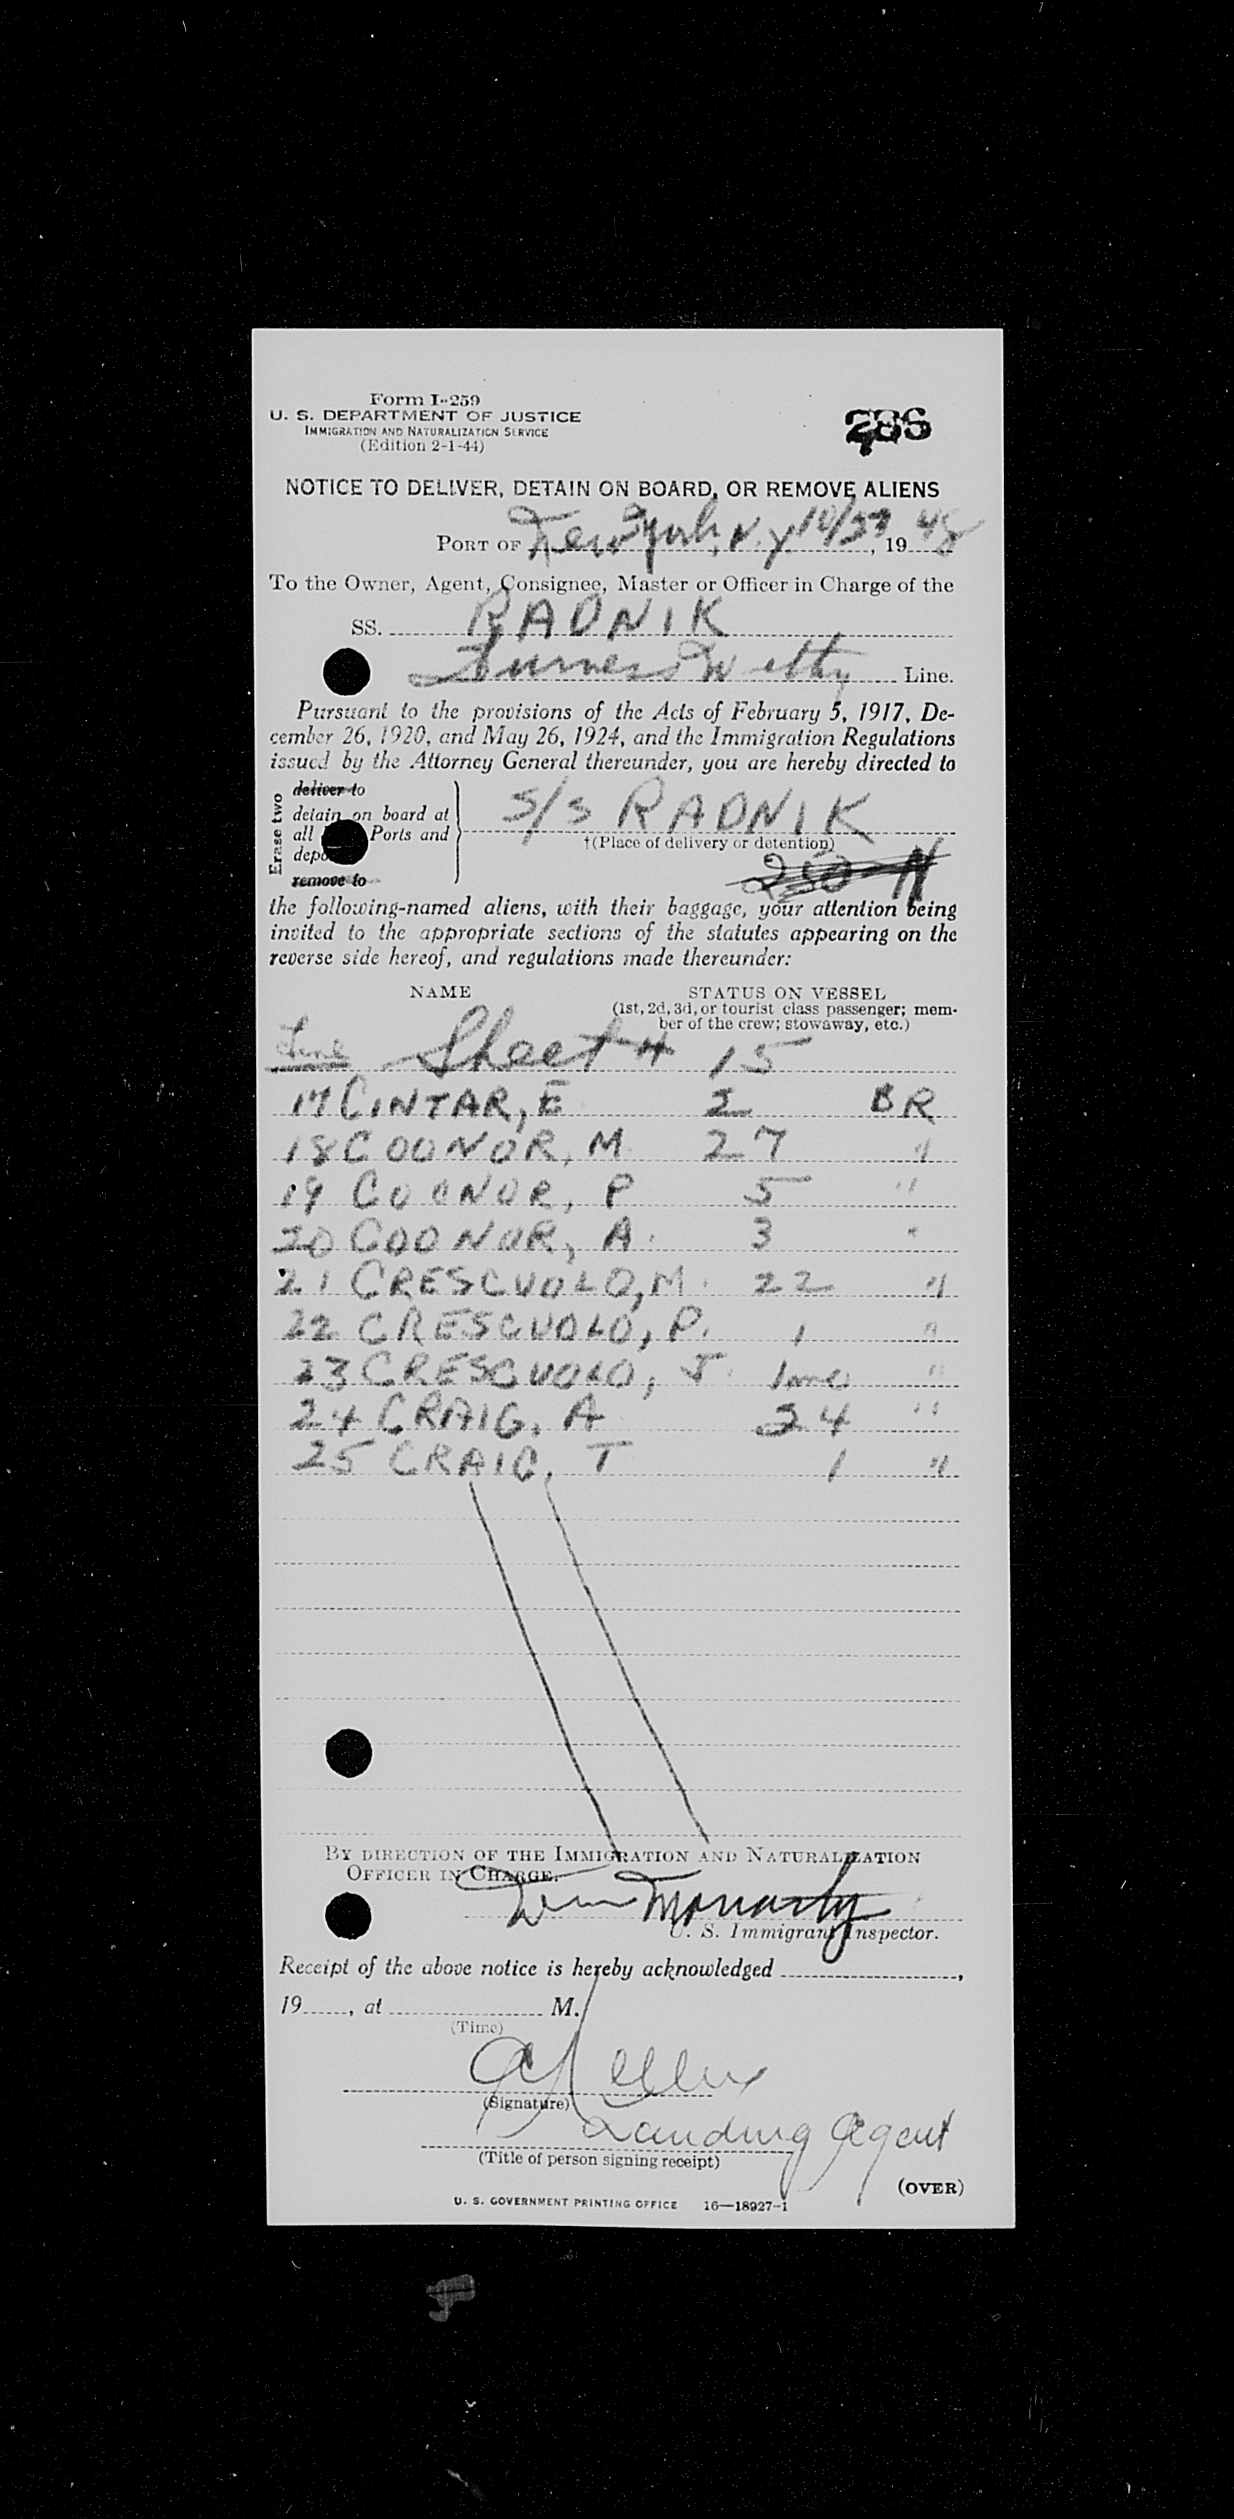 Form I-259
U. S. DEPARTMENT OF JUSTICE
IMMIGRATION AND NATURALIZATION SERVICE
(Edition 2-1-44)
286
NOTICE TO DELIVER, DETAIN ON BOARD, OR REMOVE ALIENS
PORT OF New York, N.Y. 10/27, 1948
To the Owner, Agent, Consignee, Master or Officer in Charge of the
SS. RADNIK
Furness Withy Line.
Pursuant to the provisions of the Acts of February 5, 1917, De-
cember 26, 1920, and May 26, 1924, and the Immigration Regulations
issued by the Attorney General thereunder, you are hereby directed to
Erase two
deliver to
detain on board at
all Ports and
remove to
S/S RADNIK
†(Place of delivery or detention)
the following-named aliens, with their baggage, your attention being
invited to the appropriate sections of the statutes appearing on the
reverse side hereof, and regulations made thereunder:
NAME STATUS ON VESSEL
(1st, 2d, 3d, or tourist class passenger; mem-
ber of the crew; stowaway, etc.)
Line Sheet # 15
17 CINTAR, E 2 BR
18 COONOR, M 27 "
19 COONOR, P 5 "
20 COONOR, A. 3 "
21 CRESCUOLO, M. 22 "
22 CRESCUOLO, P. 1 "
23 CRESCUOLO, J. 1mo "
24 CRAIG, A 24 "
25 CRAIG, T 1 "
BY DIRECTION OF THE IMMIGRATION AND NATURALIZATION
OFFICER IN CHARGE.
Moriarty
U. S. Immigrant Inspector.
Receipt of the above notice is hereby acknowledged ,
19 , at M.
(Time)
(Signature)
Landing Agent
(Title of person signing receipt)
(OVER)
U. S. GOVERNMENT PRINTING OFFICE 16—18927-1